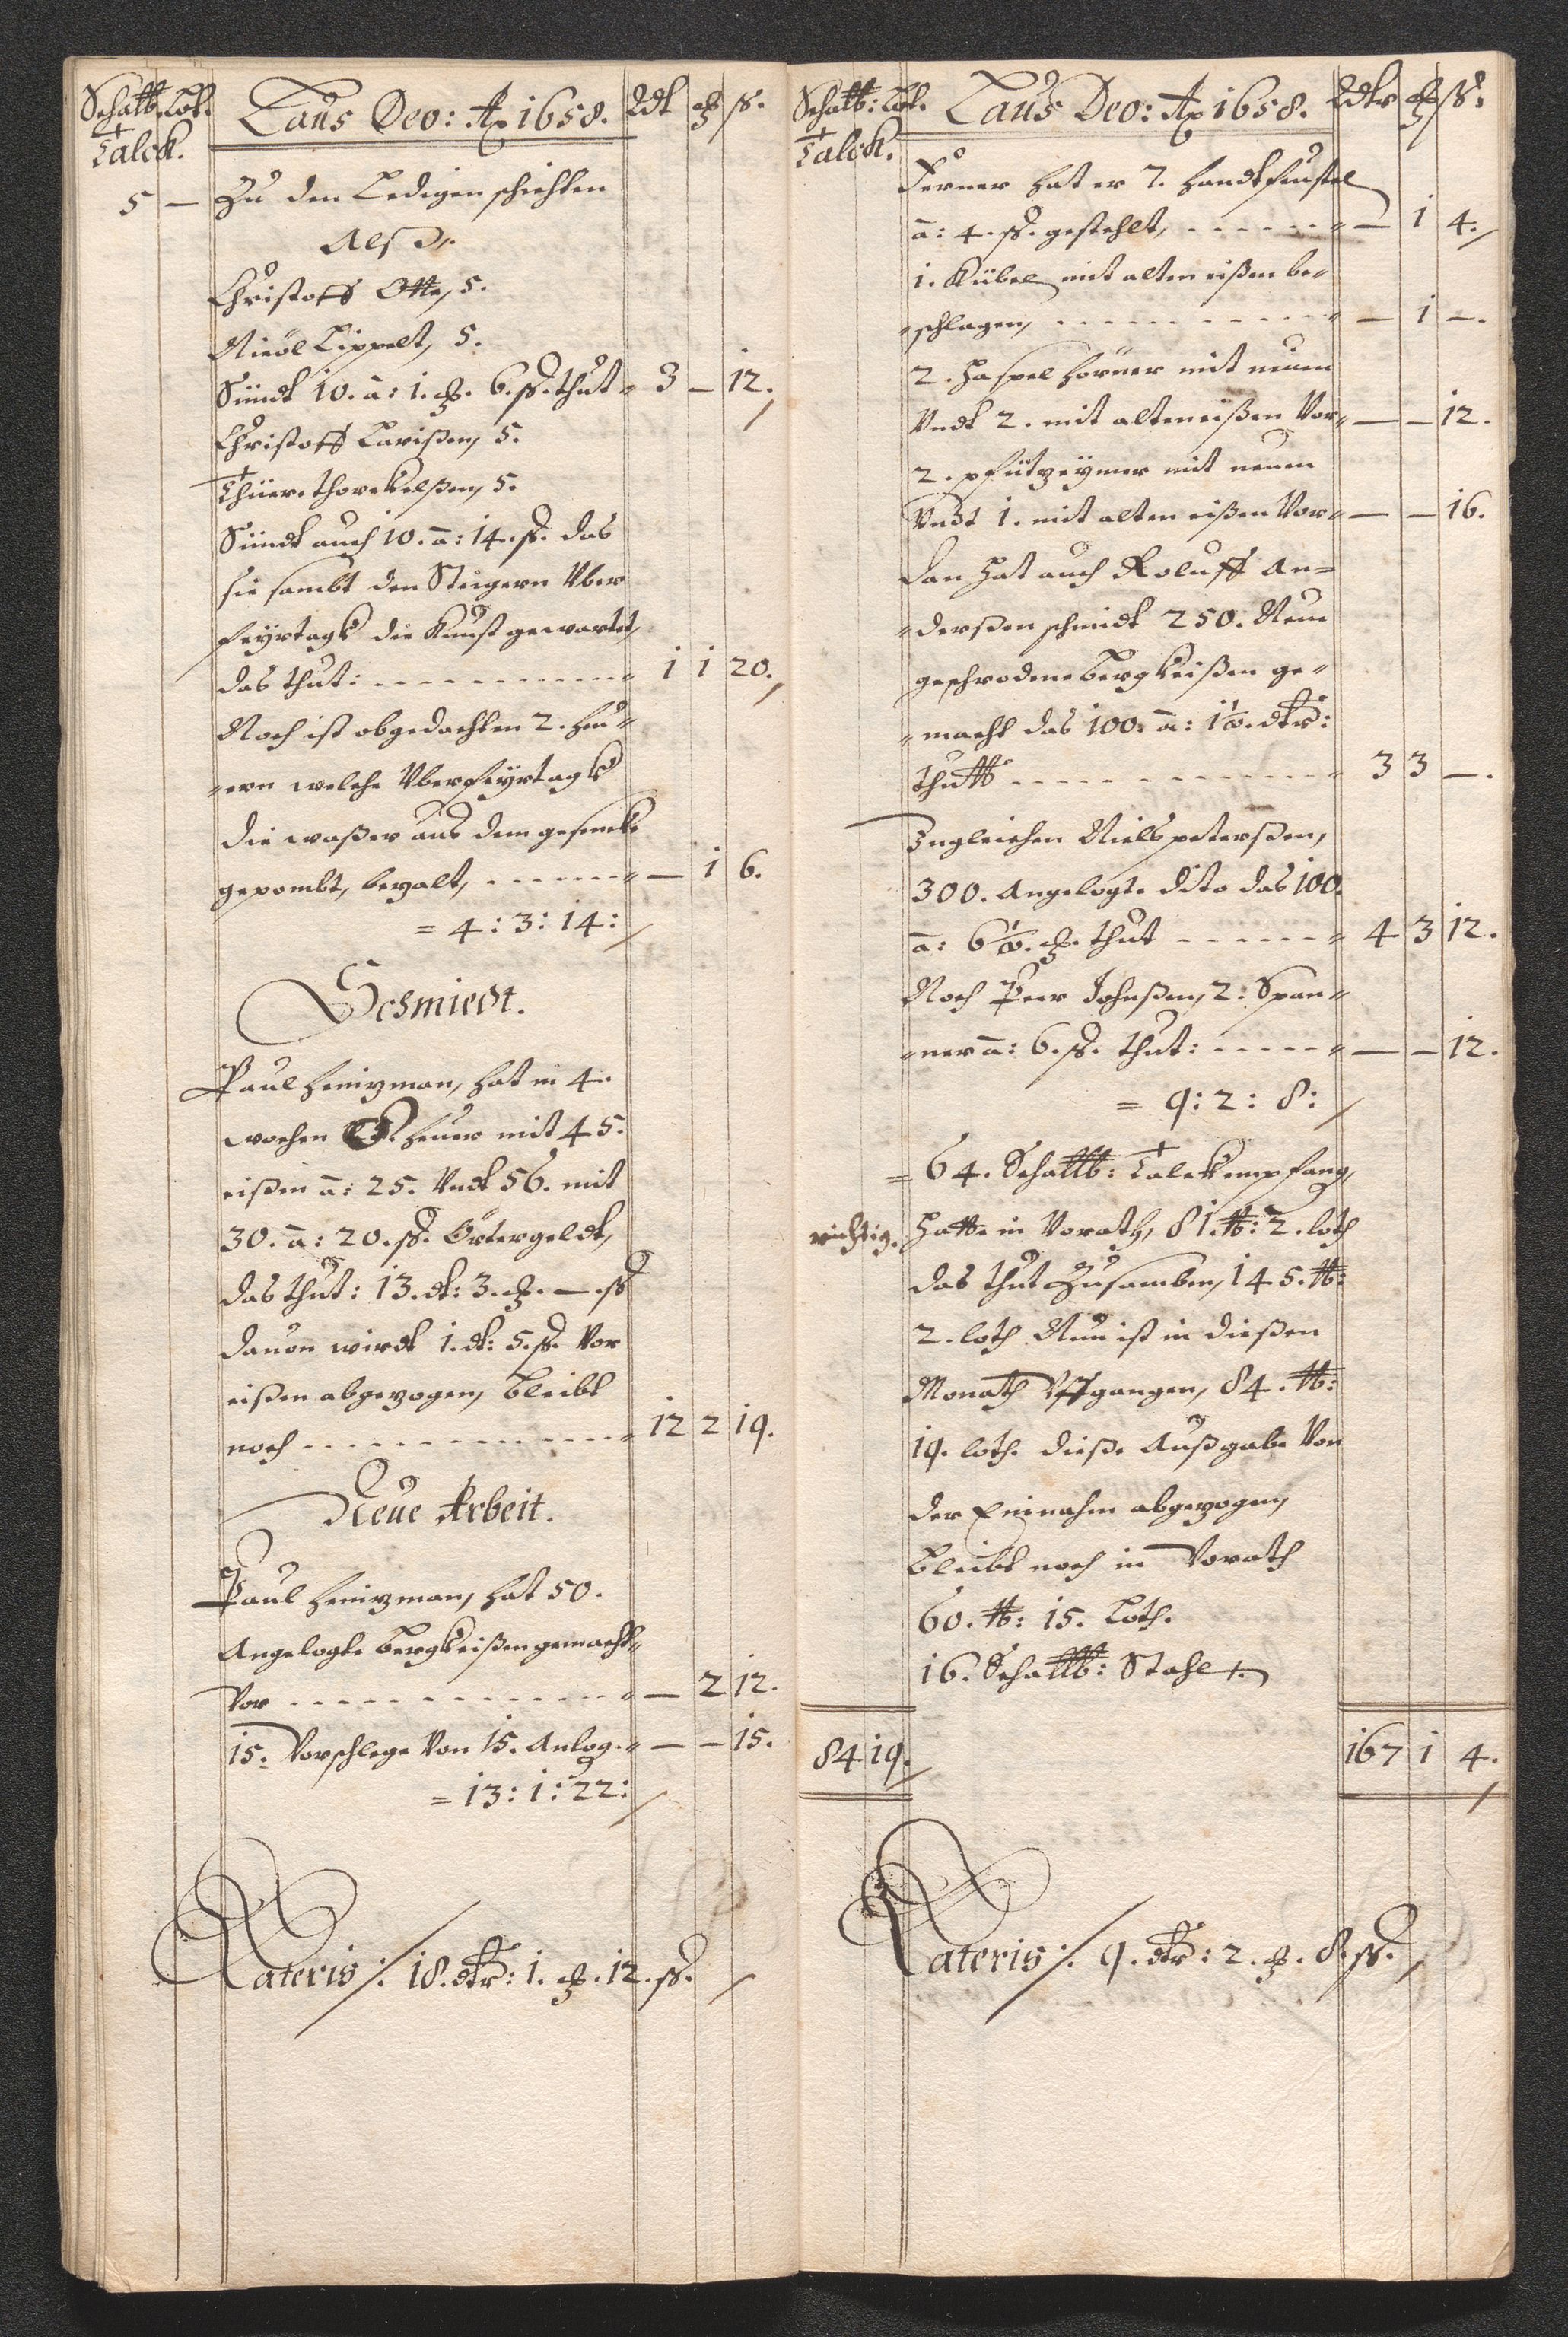 Schalb: Lot.
Talck.
Laus Deo: Ao 1658. Rdt ꝗ ß.
5 — Zu den Ledigen schichten
Alß
Christoff Otte, 5.
Nicol Lippelt, 5.
Sündt 10. à: 1. ꝗ. 6. ß. thut 3 — 12.
Christoff Larißen, 5.
Thüer. Thorckelßen, 5.
Sündt auch 10. à: 14. ß. das
sie sambt den Steigern Vber
feÿrtags die Kunst gewartet,
das thut: 1 1 20.
Noch ist obgedachten 2. heu-
ern welche Vber feÿrtagk
die waßer aus dem gesencke
gepombt, bezalt, — 1 6.
= 4: 3: 14:
Schmiedt.
Paul Heinzman, hat in 4.
wochen heuer mit 45.
eißen à: 25. Vndt 56. mit
30. à: 20. ß. Örtergeldt,
das thut: 13. dt: 3. ꝗ. — ß
dauon wirdt 1. dt: 5. ß. Vor
eißen abgezogen, bleibt
noch 12 2 19.
Neue Arbeit.
Paul Heinzman, hat 50.
Angelogte bergkeißen gemacht
Vor — 2 12.
15. Vorschlege Von 15. Anlog. — — 15.
= 13: 1: 22:
Lateris ∕. 18. dtr: 1. ꝗ. 12. ß.
Schalb: Lot.
Talck.
Laus Deo: Ao 1658. Rdtr ꝗ ß.
Ferner hat er 7. handtfeustel
à: 4. ß. gestehlt, — 1 4.
1. Kübel mit alten eißen be-
schlagen, — 1 —.
2. Haspel hörner mit neuen
Vndt 2. mit alten eißen Vor — — 12.
2. pfützeÿmer mit neuen
Vndt 1. mit alten eißen Vor — — 16.
Dan hat auch Roluff An=
derßen schmidt 250. Neue
geschrodene bergkeißen ge-
macht das 100. à: 1½. dtr:
thutt 3 3 —.
Ingleichen Nielß peterßen,
300. Angelogte dito das 100
à: 6½. ꝗ. thut 4 3 12.
Noch Peer Johnßen, 2. Span-
ner à: 6. ß. thut: — — 12.
= 9: 2: 8:
= 64. Schallb: Talckempfang,
richtig. Hatte in Vorath, 81. ℔: 2. loth
das thut Zusamben, 145. ℔:
2. loth Nun ist in dießen
Monath Vffgangen, 84. ℔:
19. loth. dieße Außgabe Von
der Einnahm abgezogen,
bleibt noch in Vorath
60. ℔: 15. Loth.
16. Schallb: Stahl
84 19. 167 1 4.
Lateris ∕. 9. dtr: 2. ꝗ. 8. ß.